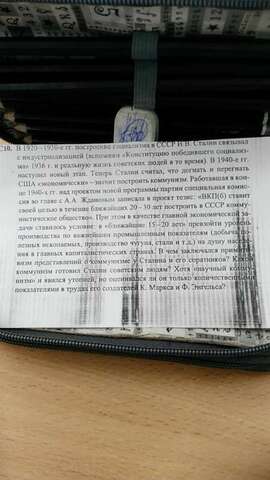 С10. В 1920 -1930-е гг. построение социализма в СССР И.В. Сталин связывал
с индустриализацией (вспомним «Конституцию победившего социализ-
ма» 1936 г. и реальную жизнь советских людей в то время). В 1940-е гг.
наступил новый этап. Теперь Сталин считал, что догнать и перегнать
США «экономически» – значит построить коммунизм. Работавшая в кон-
це 1940-х гг. над проектом новой программы партии специальная комис-
сия во главе с А.А. Ждановым записала в проект тезис: «ВКП(б) ставит
своей целью в течение ближайших 20 - 30 лет построить в СССР комму-
нистическое общество». При этом в качестве главной экономической за-
дачи ставилось условие: в «ближайшие 15 -20 лет» превзойти уровень
производства по важнейшим промышленным показателям (добыча по-
лезных ископаемых, производство чугуна, стали и т.д.) на душу населе-
ния в главных капиталистических странах. В чем заключался примити-
визм представлений о коммунизме у Сталина и его соратников? Какой
коммунизм готовил Сталин советским людям? Хотя «научный комму-
низм» и явился утопией, но оценивался ли он только количественными
показателями в трудах его создателей К. Маркса и Ф. Энгельса?